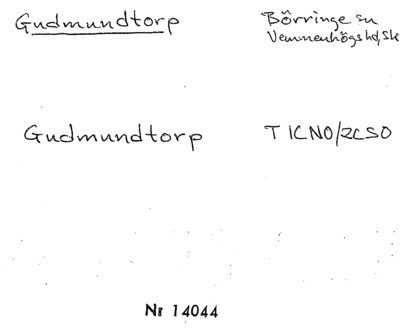 Gudmundtorp
Börringe sn
Vemmenhögs hd, Sk
Gudmundtorp
TICNO/2CSO
Nr 14044